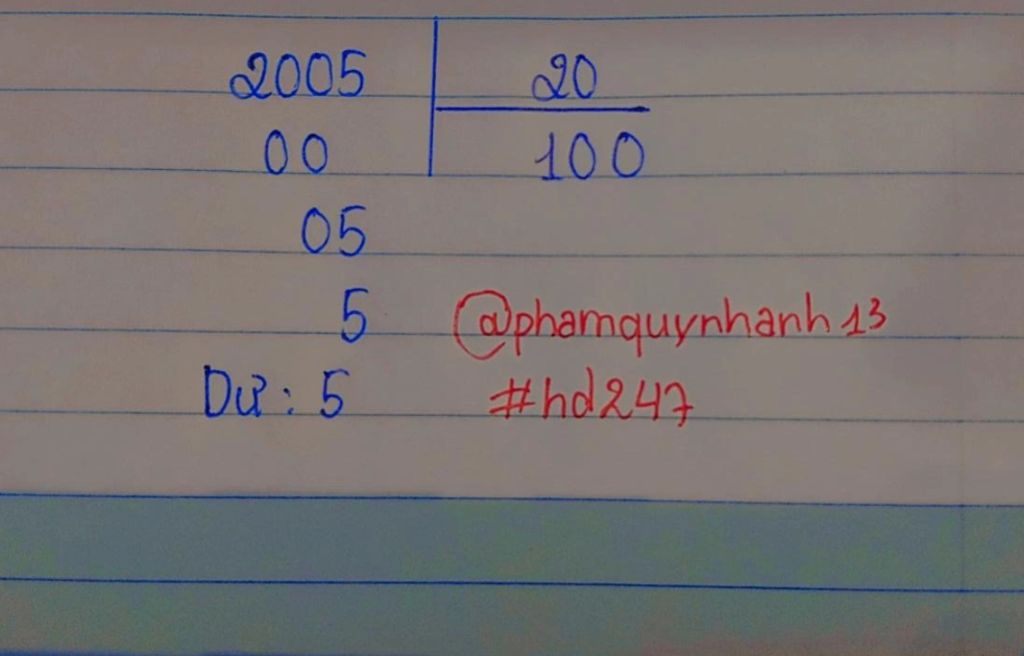 2005 20
00 100
05
5 @phamquynhanh13
Dư: 5 #hd247